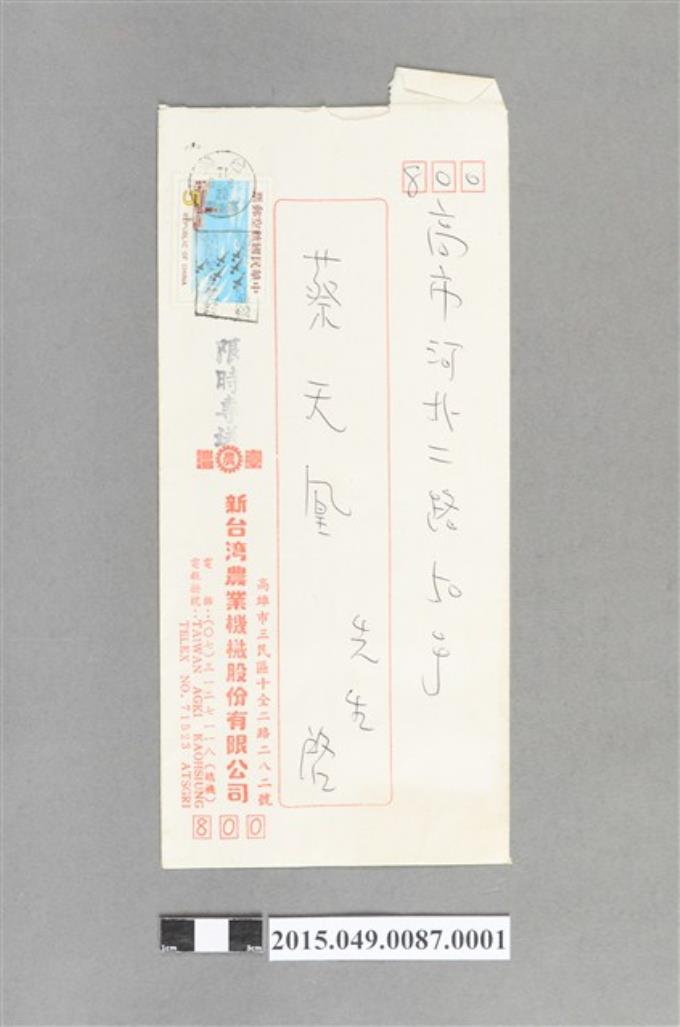 800
高市河北二路50号
蔡天凰
先生
啓
中華民國航空郵票
REPUBLIC OF CHINA
5
限時專送
農
高雄市三民區十全二路二八二號
新台湾農業機械股份有限公司
電話：(〇七)三一三七一一八(總機)
電報掛號：TAIWAN AGKI KAOHSIUNG
TELEX NO. 71523 ATSGRI
800
1cm
5cm
2015.049.0087.0001